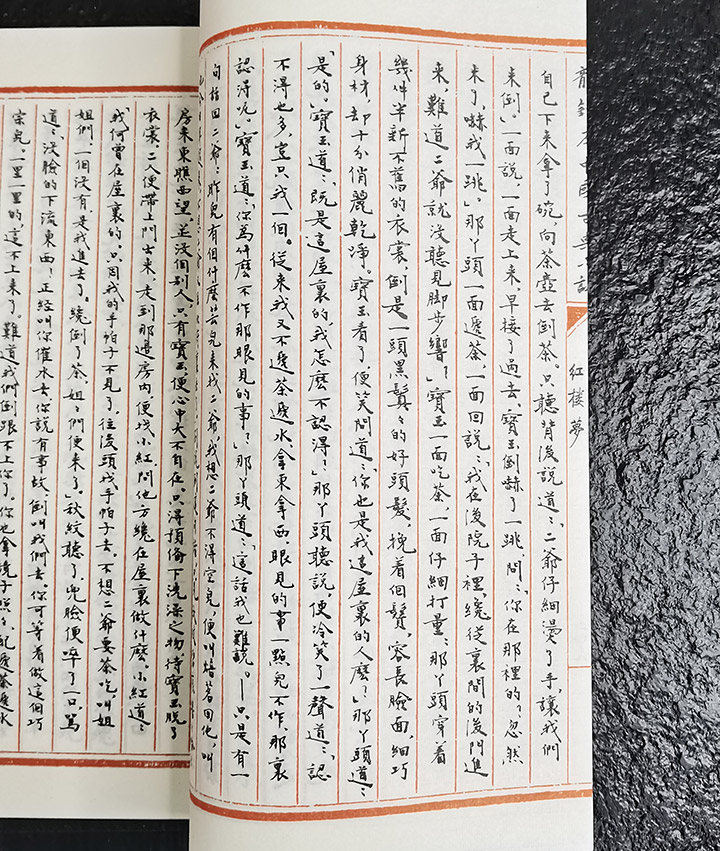 紅樓夢
自己下來拿了碗向茶壺去倒茶。只聽背後説道:「二爺仔細燙了手,讓我們
來倒。」一面說,一面走上來,早接了過去。寶玉倒赫了一跳,問:「你在那裡的?忽然
來了,嚇我一跳。」那丫頭一面遞茶,一面回說:「我在後院子裡纔從裏間的後門進
來,難道二爺就沒聽見脚步響?」寶玉一面吃茶,一面仔細打量:那丫頭穿着
幾件半新不舊的衣裳,倒是一頭黑鬒々的好頭髮,挽着個鬢,容長臉面,細巧
身材,却十分俏麗乾淨。寶玉看了便笑問道:「你也是我這屋裏的人麽?」那丫頭道:
「是的。」寶玉道:「既是這屋裏的,我怎麽不認得?」那丫頭聽說,便冷笑了一聲道:「認
不得也多,豈只我一個。從來我又不遞茶遞水拿東拿西,眼見的事一點兒不作,那裏
認得呢」寶玉道:「你為什麽不作那眼見的事?」那丫頭道:「這話我也難説。—只是有一
句話回二爺:昨兒有個什麽芸兒來找二爺,我想二爺不得空兒,便叫焙茗回他,叫
房來東瞧西望,並沒個別人,只有寶玉,便心中大不自在。只得預備下洗澡之物,待寶玉脱了
衣裳,二人便帶上門出來,走到那邊房內便找小紅,問他方纔在屋裏做什麽,小紅道:
「我何曾在屋裏的。只因我的手帕子不見了,往後頭找手帕子去。不想二爺要茶吃,叫姐
姐們,一個沒有,是我進去了。纔倒了茶,姐々們便來了。」秋紋聽了,兜臉便啐了一口,罵
道:「沒臉的下流東西!正經叫你催水去,你説有事故,倒叫我們去。你可等着做這個巧
宗兒,一里一里的,這不上來了。難道我們倒跟不上你了。你也拿鏡子照々,配遞茶遞水